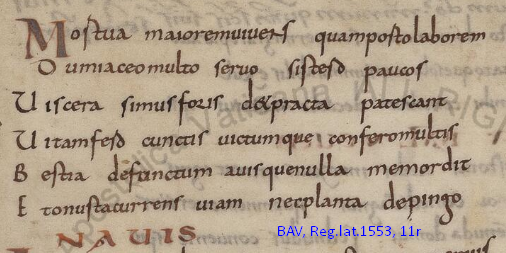 Mortua maioremuiuens quamportolaborem
Dumiaceomulto seruo sistero paucos
Uiscera simusforis d&practa patescant
Uitamfero cunctis uictumque conferomultis
Bestia defunctum auisquenulla memordit
Etonustacurrens uiam necplanta depingo
NAUIS
BAV, Reg.lat.1553, 11r